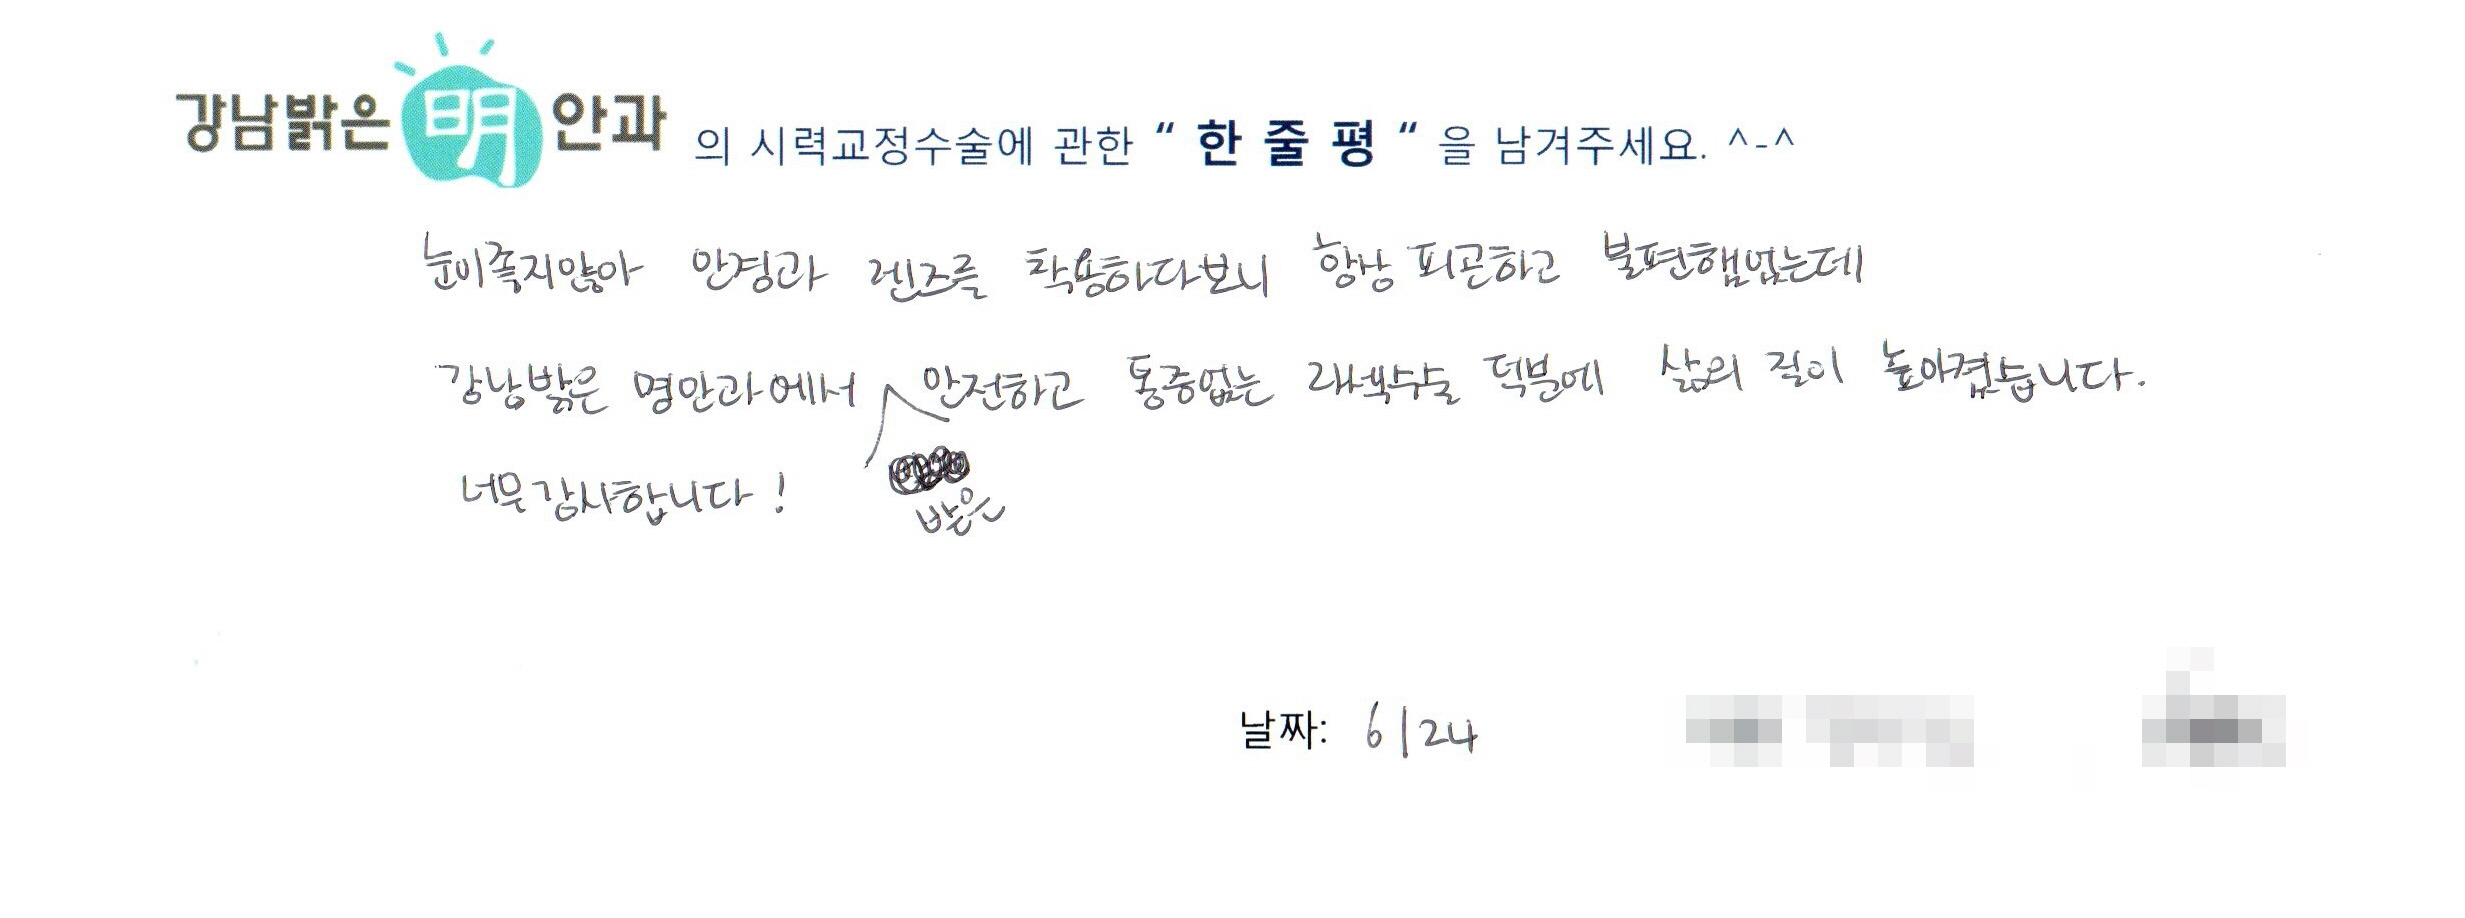 강남밝은明안과 의 시력교정수술에 관한 “ 한 줄 평 “ 을 남겨주세요. ^-^
눈이좋지않아 안경과 렌즈를 착용하다보니 항상 피곤하고 불편했었는데
강남밝은 명안과에서 안전하고 통증없는 라섹수술 덕분에 삶의 질이 높아졌습니다.
너무감사합니다!
받은
날짜: 6/24